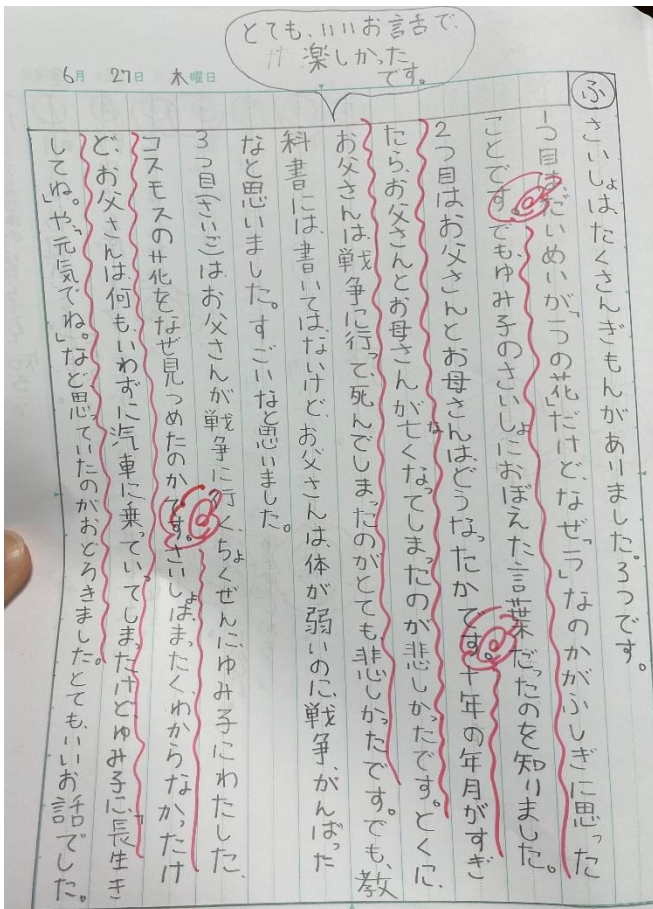 とても、いいお話で、
楽しかった
です。
6月 27日 木曜日
ふ
さいしょは、たくさんぎもんがありました。3つです。
1つ目は、だいめいが「一つの花」だけど、なぜ「一つ」なのかがふしぎに思った
ことです。でもゆみ子のさいしょにおぼえた言葉だったのを知りました。
2つ目はお父さんとお母さんは、どうなったかです。十年の年月がすぎ
たら、お父さんとお母さんが亡くなってしまったのが悲しかったです。とくに、
お父さんは戦争に行って、死んでしまったのがとても、悲しかったです。でも、教
科書には、書いては、ないけど、お父さんは、体が弱いのに、戦争、がんばった
なと思いました。すごいなと思いました。
3つ目(さいご)は、お父さんが戦争に行く、ちょくぜんに、ゆみ子にわたした、
コスモスの花をなぜ見つめたのかです。さいしょは、まったく、わからなかったけ
ど、お父さんは、何も、いわずに汽車に乗っていってしまったけどゆみ子に、「長生き
してね。」や、「元気でね。」など思っていたのがおどろきました。とても、いいお話でした。